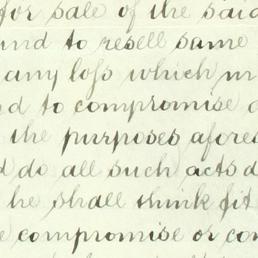 for sale of the said
and to resell same
any loss which m
nd to compromise
the purposes afores
d do all such acts d
he shall think fit
e compromise or con